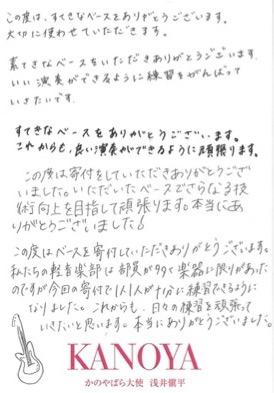 この度は、すてきなベースをありがとうございます。
大切に使わせていただきます。
素てきなベースをいただきありがとうございます。
いい演奏ができるように練習をがんばって
いきたいです。
すてきなベースをありがとうございます。
これからも、良い演奏ができるように頑張ります。
この度は寄付をしていただきありがとうござい
ました。いただいたベースでさらなる技
術向上を目指して頑張ります。本当にあ
りがとうございました!
この度はベースを寄付していただきありがとうございます。
私たちの軽音楽部は部員が多く楽器に限りがあった
のですが今回の寄付で1人1人が十分に練習できるように
なりました。これからも、日々の練習を頑張って
いきたいと思います。本当にありがとうございました。
KANOYA
かのやばら大使 浅井愼平